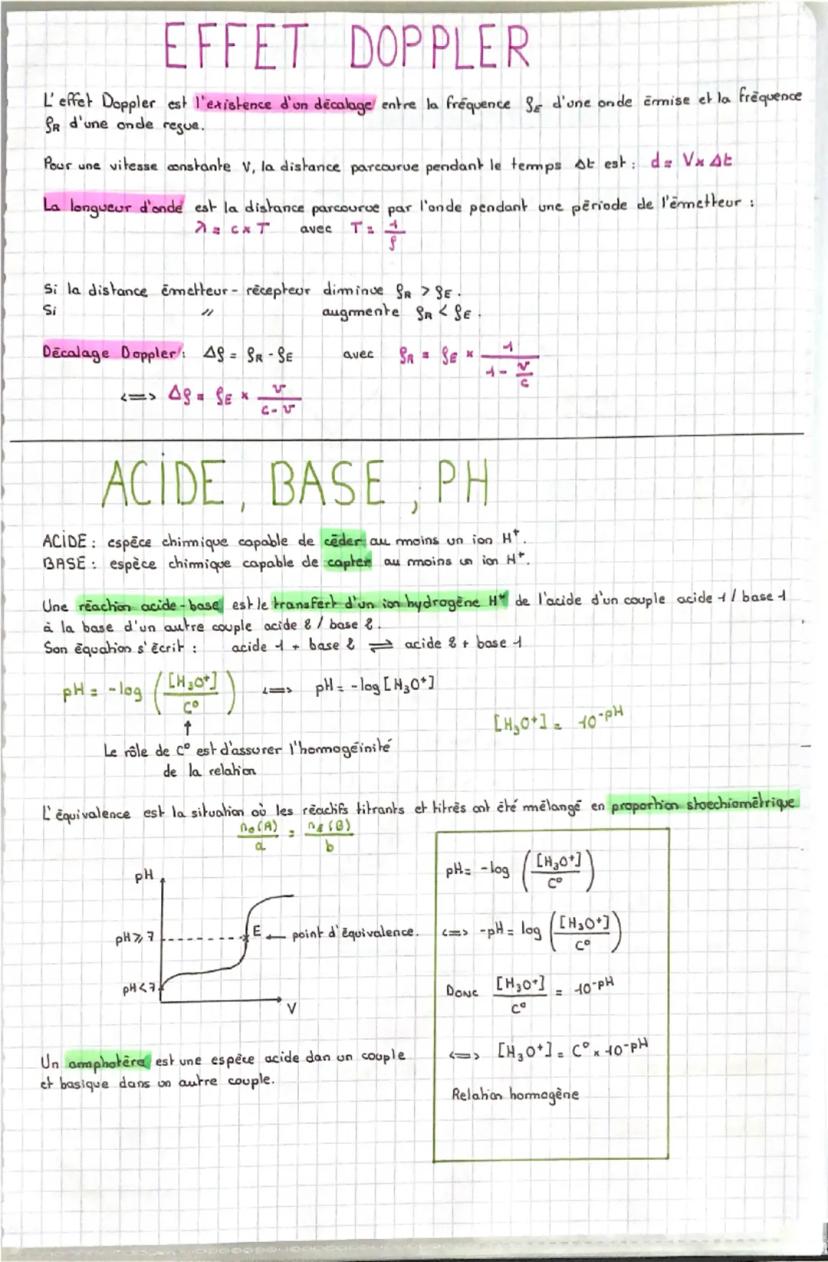 EFFET DOPPLER
L'effet Doppler est l'existence d'un décalage entre la fréquence fE d'une onde émise et la fréquence
fR d'une onde reçue.
Pour une vitesse constante V, la distance parcourue pendant le temps Δt est : d = V × Δt
La longueur d'onde est la distance parcourue par l'onde pendant une période de l'émetteur :
λ = c × T avec T = 1/f
Si la distance émetteur - récepteur diminue fR > fE.
Si " augmente fR < fE.
Décalage Doppler : Δf = fR - fE avec fR = fE × 1/(1 - v/c)
<=> Δf = fE × v/(c - v)
ACIDE, BASE, PH
ACIDE : espèce chimique capable de céder au moins un ion H⁺.
BASE : espèce chimique capable de capter au moins un ion H⁺.
Une réaction acide-base est le transfert d'un ion hydrogène H⁺ de l'acide d'un couple acide 1 / base 1
à la base d'un autre couple acide 2 / base 2.
Son équation s'écrit : acide 1 + base 2 ⇌ acide 2 + base 1
pH = -log ([H₃O⁺]/C°) <=> pH = -log [H₃O⁺]
[H₃O⁺] = 10^-pH
↑
Le rôle de C° est d'assurer l'homogéinité
de la relation
L'équivalence est la situation où les réactifs titrants et titrés ont été mélangé en proportion stoechiométrique
n₀(A)/a = nE(B)/b
pH
pH ⩾ 7
E ← point d'équivalence.
pH < 7
V
Un amphotère est une espèce acide dan un couple
et basique dans un autre couple.
pH = -log ([H₃O⁺]/C°)
<=> -pH = log ([H₃O⁺]/C°)
Donc [H₃O⁺]/C° = 10^-pH
<=> [H₃O⁺] = C° × 10^-pH
Relation homogène